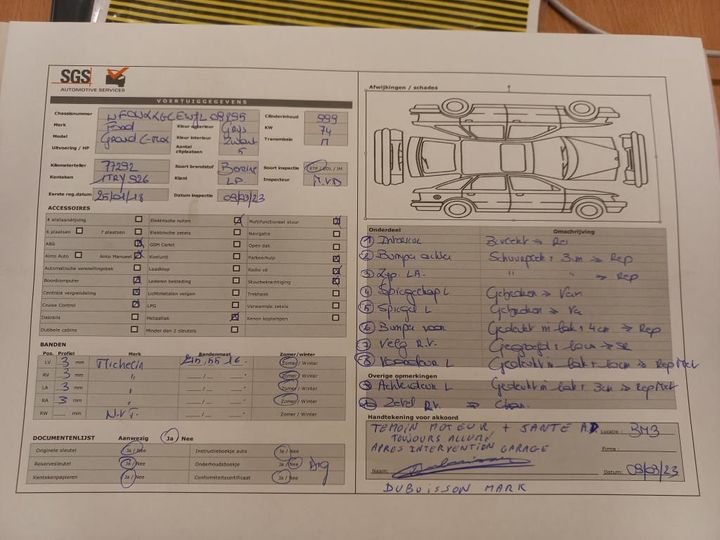 SGS
AUTOMOTIVE SERVICES
VOERTUIGGEGEVENS
Chassisnummer
Cilinderinhoud 999
Merk Ford Kleur exterieur Grijs KW 74
Model Grand C-Max Kleur interieur Zwart Transmissie M
Uitvoering / HP Aantal zitplaatsen 5
Kilometerteller 77292 Soort brandstof Soort inspectie
Kenteken 1TRY526 Klant LP Inspecteur
Eerste reg.datum 25/01/18 Datum inspectie 09/03/23
ACCESSOIRES
4 wielaandrijving Elektrische ruiten Multifunctioneel stuur
6 plaatsen 7 plaatsen Elektrische zetels Navigatie
ABS GSM Carkit Open dak
Airco Auto Airco Manueel Parkeerhulp
Automatische versnellingsbak Laadklep Radio cd
Boordcomputer Lederen bekleding Stuurbekrachtiging
Centrale vergrendeling Lichtmetalen velgen Trekhaak
Cruise Control LPG Verwarmde zetels
Metaallak Xenon koplampen
Dubbele cabine Minder dan 2 sleutels
BANDEN
Pos. Profiel Merk Bandenmaat Zomer/winter
LV 3 mm Michelin 215,55 16 Zomer / Winter
RV 3 mm " Zomer / Winter
LA 3 mm " Zomer / Winter
RA 3 mm " Zomer / Winter
RW mm N.V.T. Zomer / Winter
DOCUMENTENLIJST Aanwezig Ja / Nee
Originele sleutel Ja / Nee Instructieboekje auto Ja / Nee
Reservesleutel Ja / Nee Onderhoudsboekje Ja / Nee
Kentekenpapieren Ja / Nee Conformiteitscertificaat Ja / Nee
Afwijkingen / schades
Onderdeel Omschrijving
1 Interieur
2 Bumper achter + 3cm => Rep
3 Zyp. LA. " " => Rep
4 Spiegelkap L Gebroken => Van
5 Spiegel L Gebroken => Va
6 Bumper voor Gedeukt m lak + 4cm => Rep
7 Velg R.V.
8 Voordeur L Gedeukt m lak
Overige opmerkingen
9 Achterdeur L Gedeukt m lak + 3cm => Rep
Zetel R.V. =>
Handtekening voor akkoord
TEMOIN MOTEUR, + SANTE Locatie: BM3
TOUJOURS ALLUME,
APRES INTERVENTION GARAGE Firma:
Naam: Datum: 09/03/23
DUBUISSON MARK